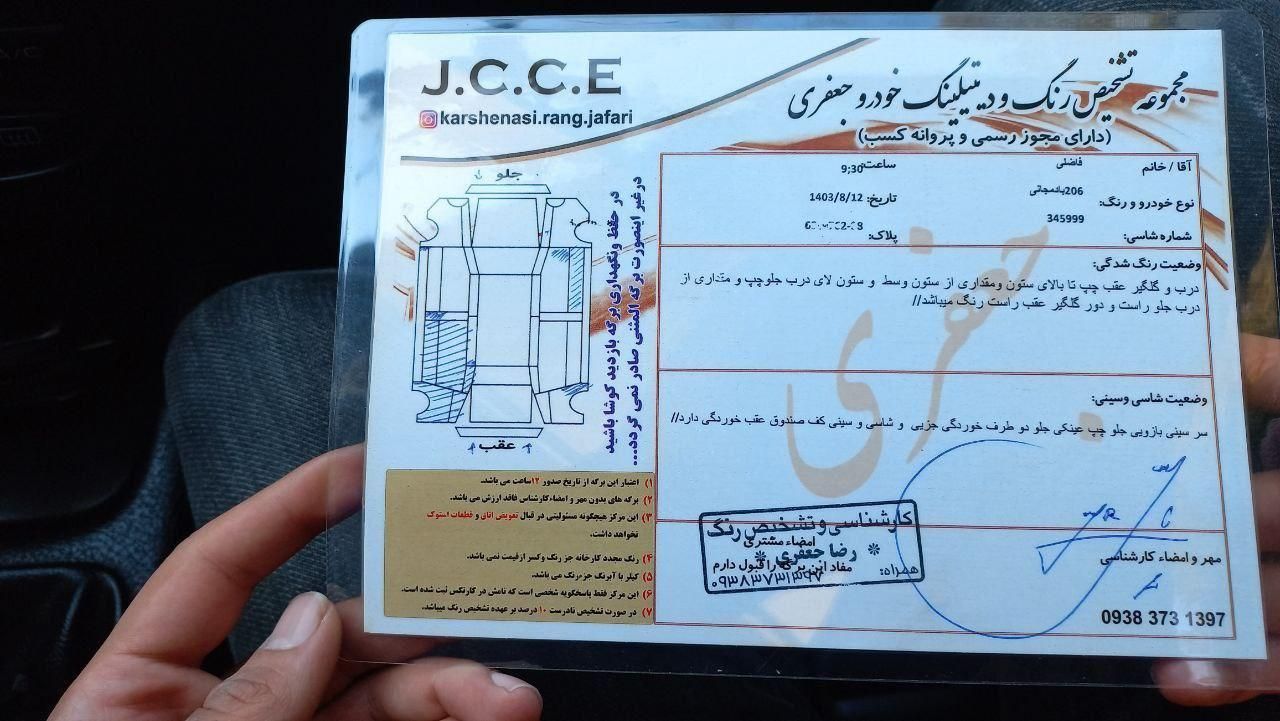 J.C.C.E
karshenasi.rang.jafari
مجموعه تشخیص رنگ و دیتیلینگ خودرو جعفری
(دارای مجوز رسمی و پروانه کسب)
آقا / خانم فاضلی
ساعت: 9;30
نوع خودرو و رنگ: 206بادمجانی
تاریخ: 1403/8/12
شماره شاسی: 345999
پلاک:
وضعیت رنگ شدگی:
درب و گلگیر عقب چپ تا بالای ستون ومقداری از ستون وسط و ستون لای درب جلوچپ و مقداری از
درب جلو راست و دور گلگیر عقب راست رنگ میباشد//
وضعیت شاسی وسینی:
سر سینی بازویی جلو چپ عینکی جلو دو طرف خوردگی جزیی و شاسی و سینی کف صندوق عقب خوردگی دارد//
مهر و امضاء کارشناسی
0938 373 1397
امضاء مشتری
مفاد این برگه را قبول دارم
کارشناسی و تشخیص رنگ
رضا جعفری
همراه: ۰۹۳۸۳۷۳۱۳۹۷
جلو
عقب
در حفظ ونگهداری برگه بازدید کوشا باشید
درغیر اینصورت برگه المثنی صادر نمی گردد...
۱) اعتبار این برگه از تاریخ صدور ۱۲ساعت می باشد.
۲) برگه های بدون مهر و امضاء کارشناس فاقد ارزش می باشد.
۳) این مرکز هیچگونه مسئولیتی در قبال تعویض اتاق و قطعات استوک
نخواهد داشت.
۴) رنگ مجدد کارخانه جز رنگ وکسر ازقیمت نمی باشد.
۵) کیلر یا آبرنگ جزءرنگ می باشد.
۶) این مرکز فقط پاسخگویه شخصی است که نامش در کارتکس ثبت شده است.
۷) در صورت تشخیص نادرست ۱۰ درصد بر عهده تشخیص رنگ میباشد.
جعفری